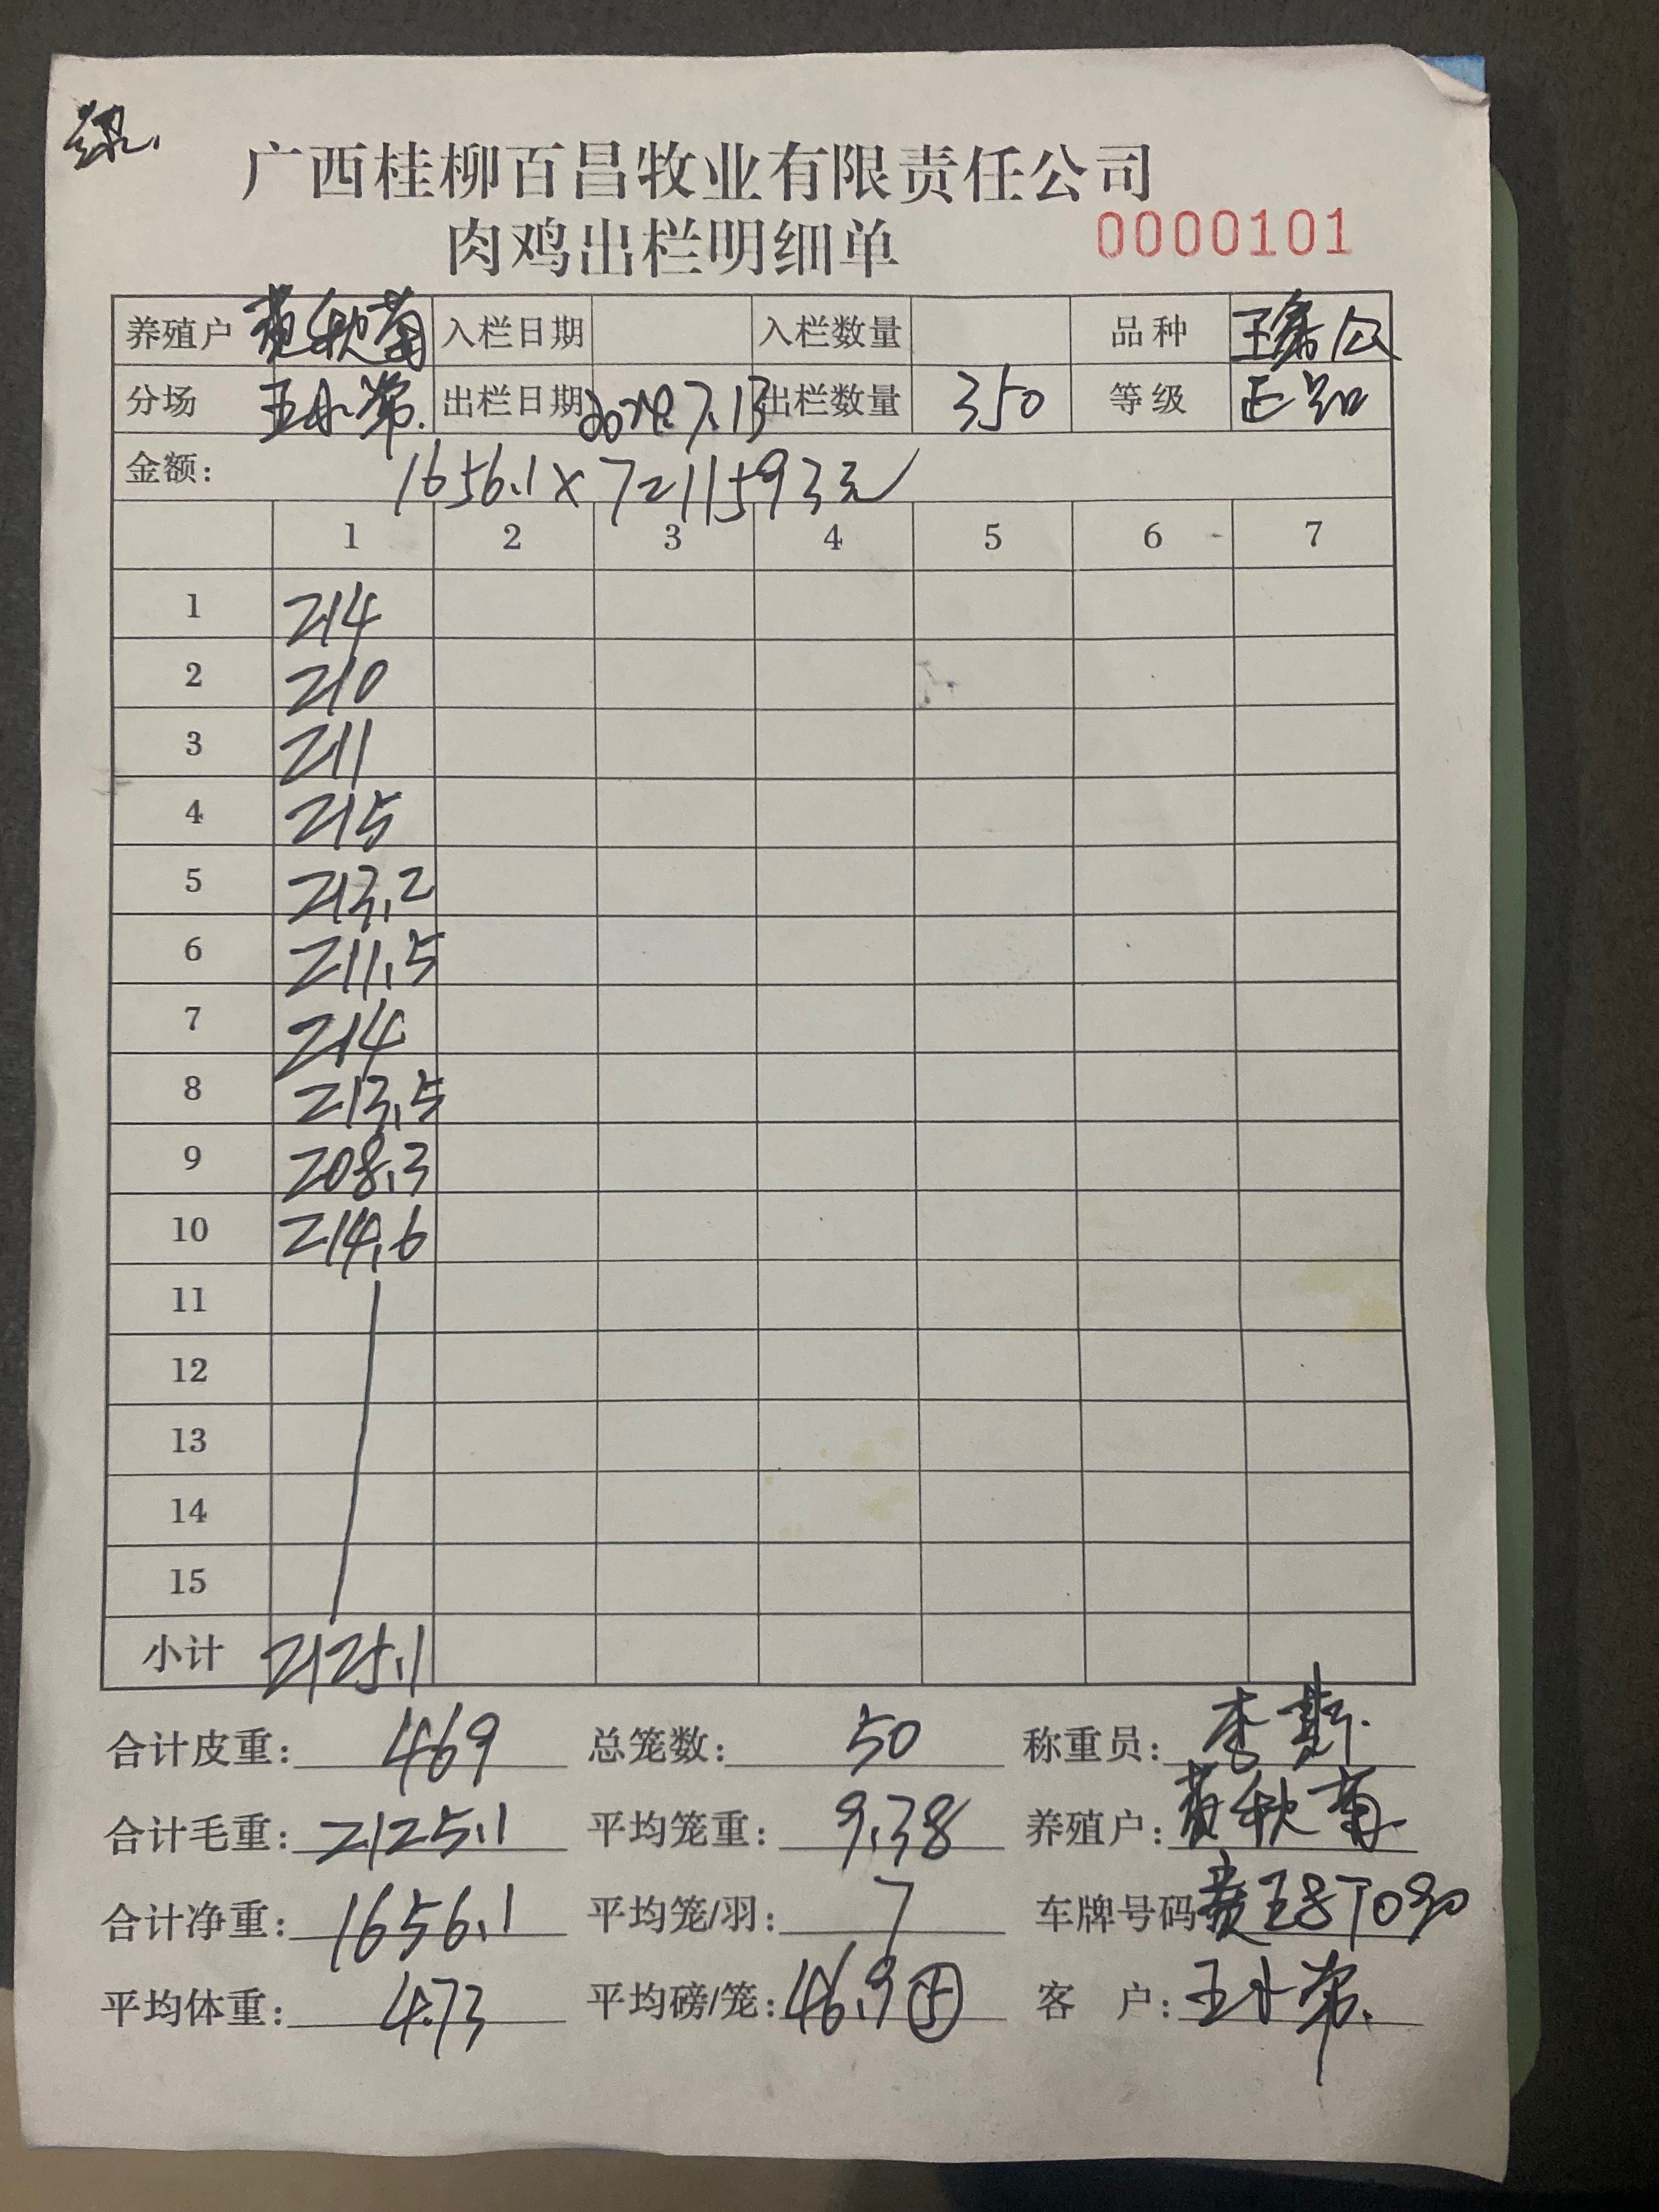 广西桂柳百昌牧业有限责任公司
肉鸡出栏明细单 0000101
养殖户 黄秋菊 入栏日期 入栏数量 品种
分场 出栏日期 7.13 出栏数量 350 等级 正品
金额: 1656.1×7=11593元
1 2 3 4 5 6 7
1 214
2 210
3 211
4 215
5 213.2
6 211.5
7 214
8 213.5
9 208.3
10 214.6
11
12
13
14
15
小计 2125.1
合计皮重: 469 总笼数: 50 称重员: 李
合计毛重: 2125.1 平均笼重: 9.38 养殖户: 黄秋菊
合计净重: 1656.1 平均笼/羽: 7 车牌号码
平均体重: 4.73 平均磅/笼: 46.9 5 客 户: